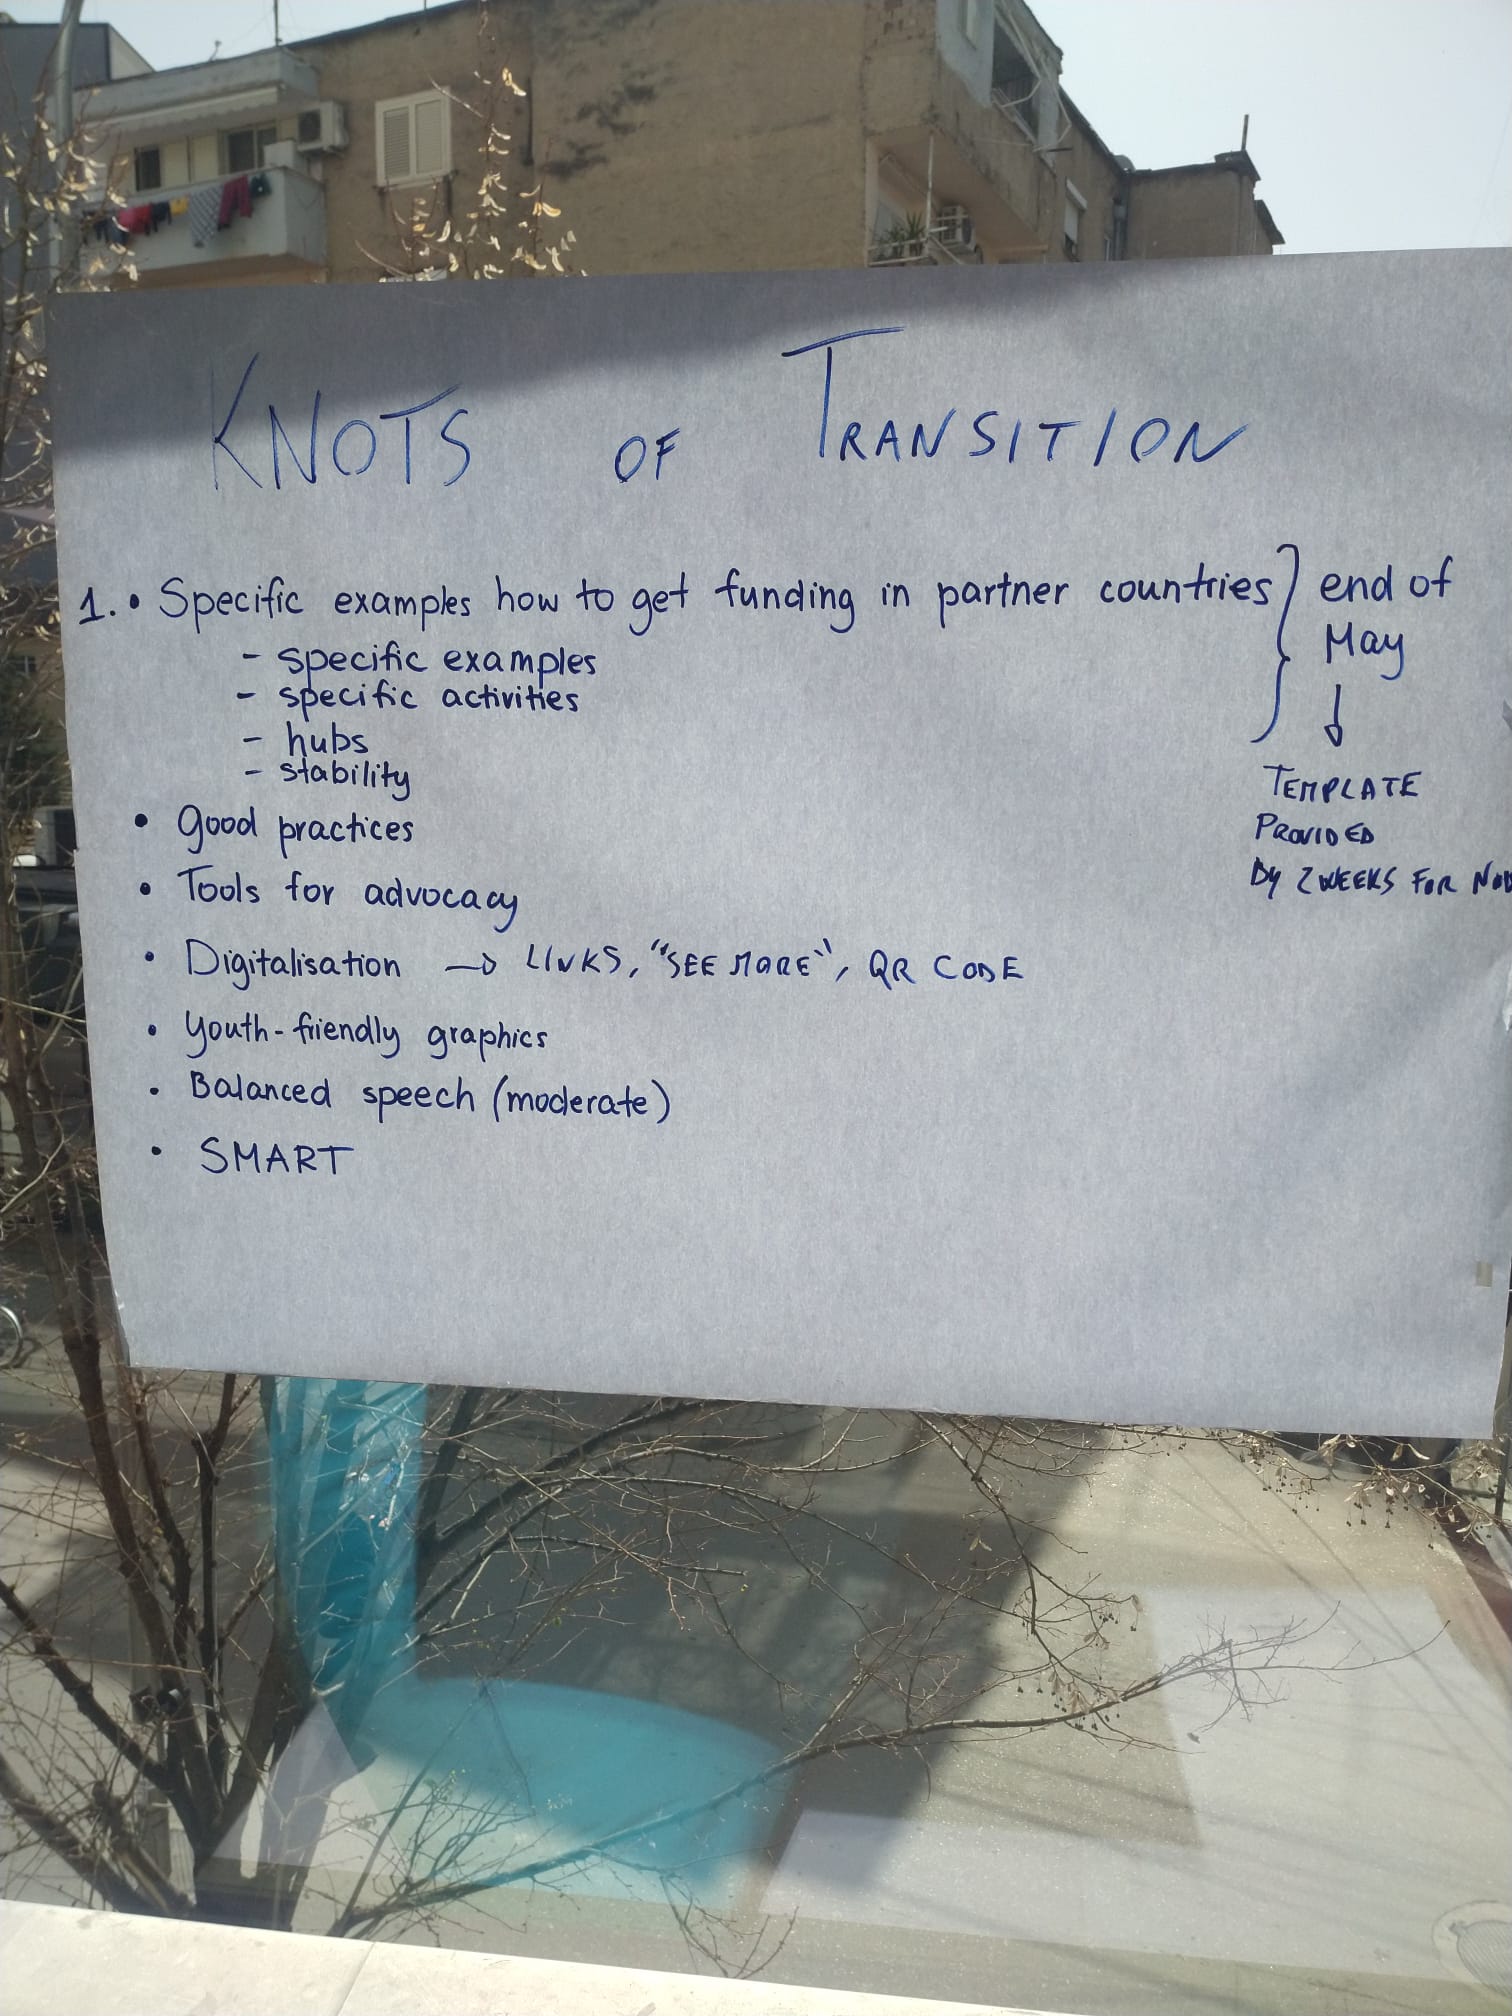 KNOTS OF TRANSITION
1. • Specific examples how to get funding in partner countries } end of
May
↓
- specific examples
- specific activities
- hubs
- stability
TEMPLATE
PROVIDED
By 2 WEEKS FOR NOW
• Good practices
• Tools for advocacy
• Digitalisation → LINKS, "SEE MORE", QR CODE
• Youth-friendly graphics
• Balanced speech (moderate)
• SMART